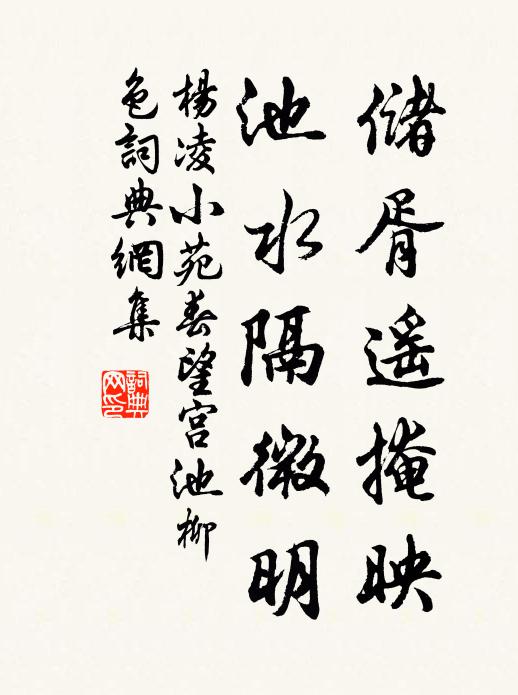 儲胥遥掩映
池水隔微明
楊凌小苑春望宫池柳
色詞典網集
詞典
网印